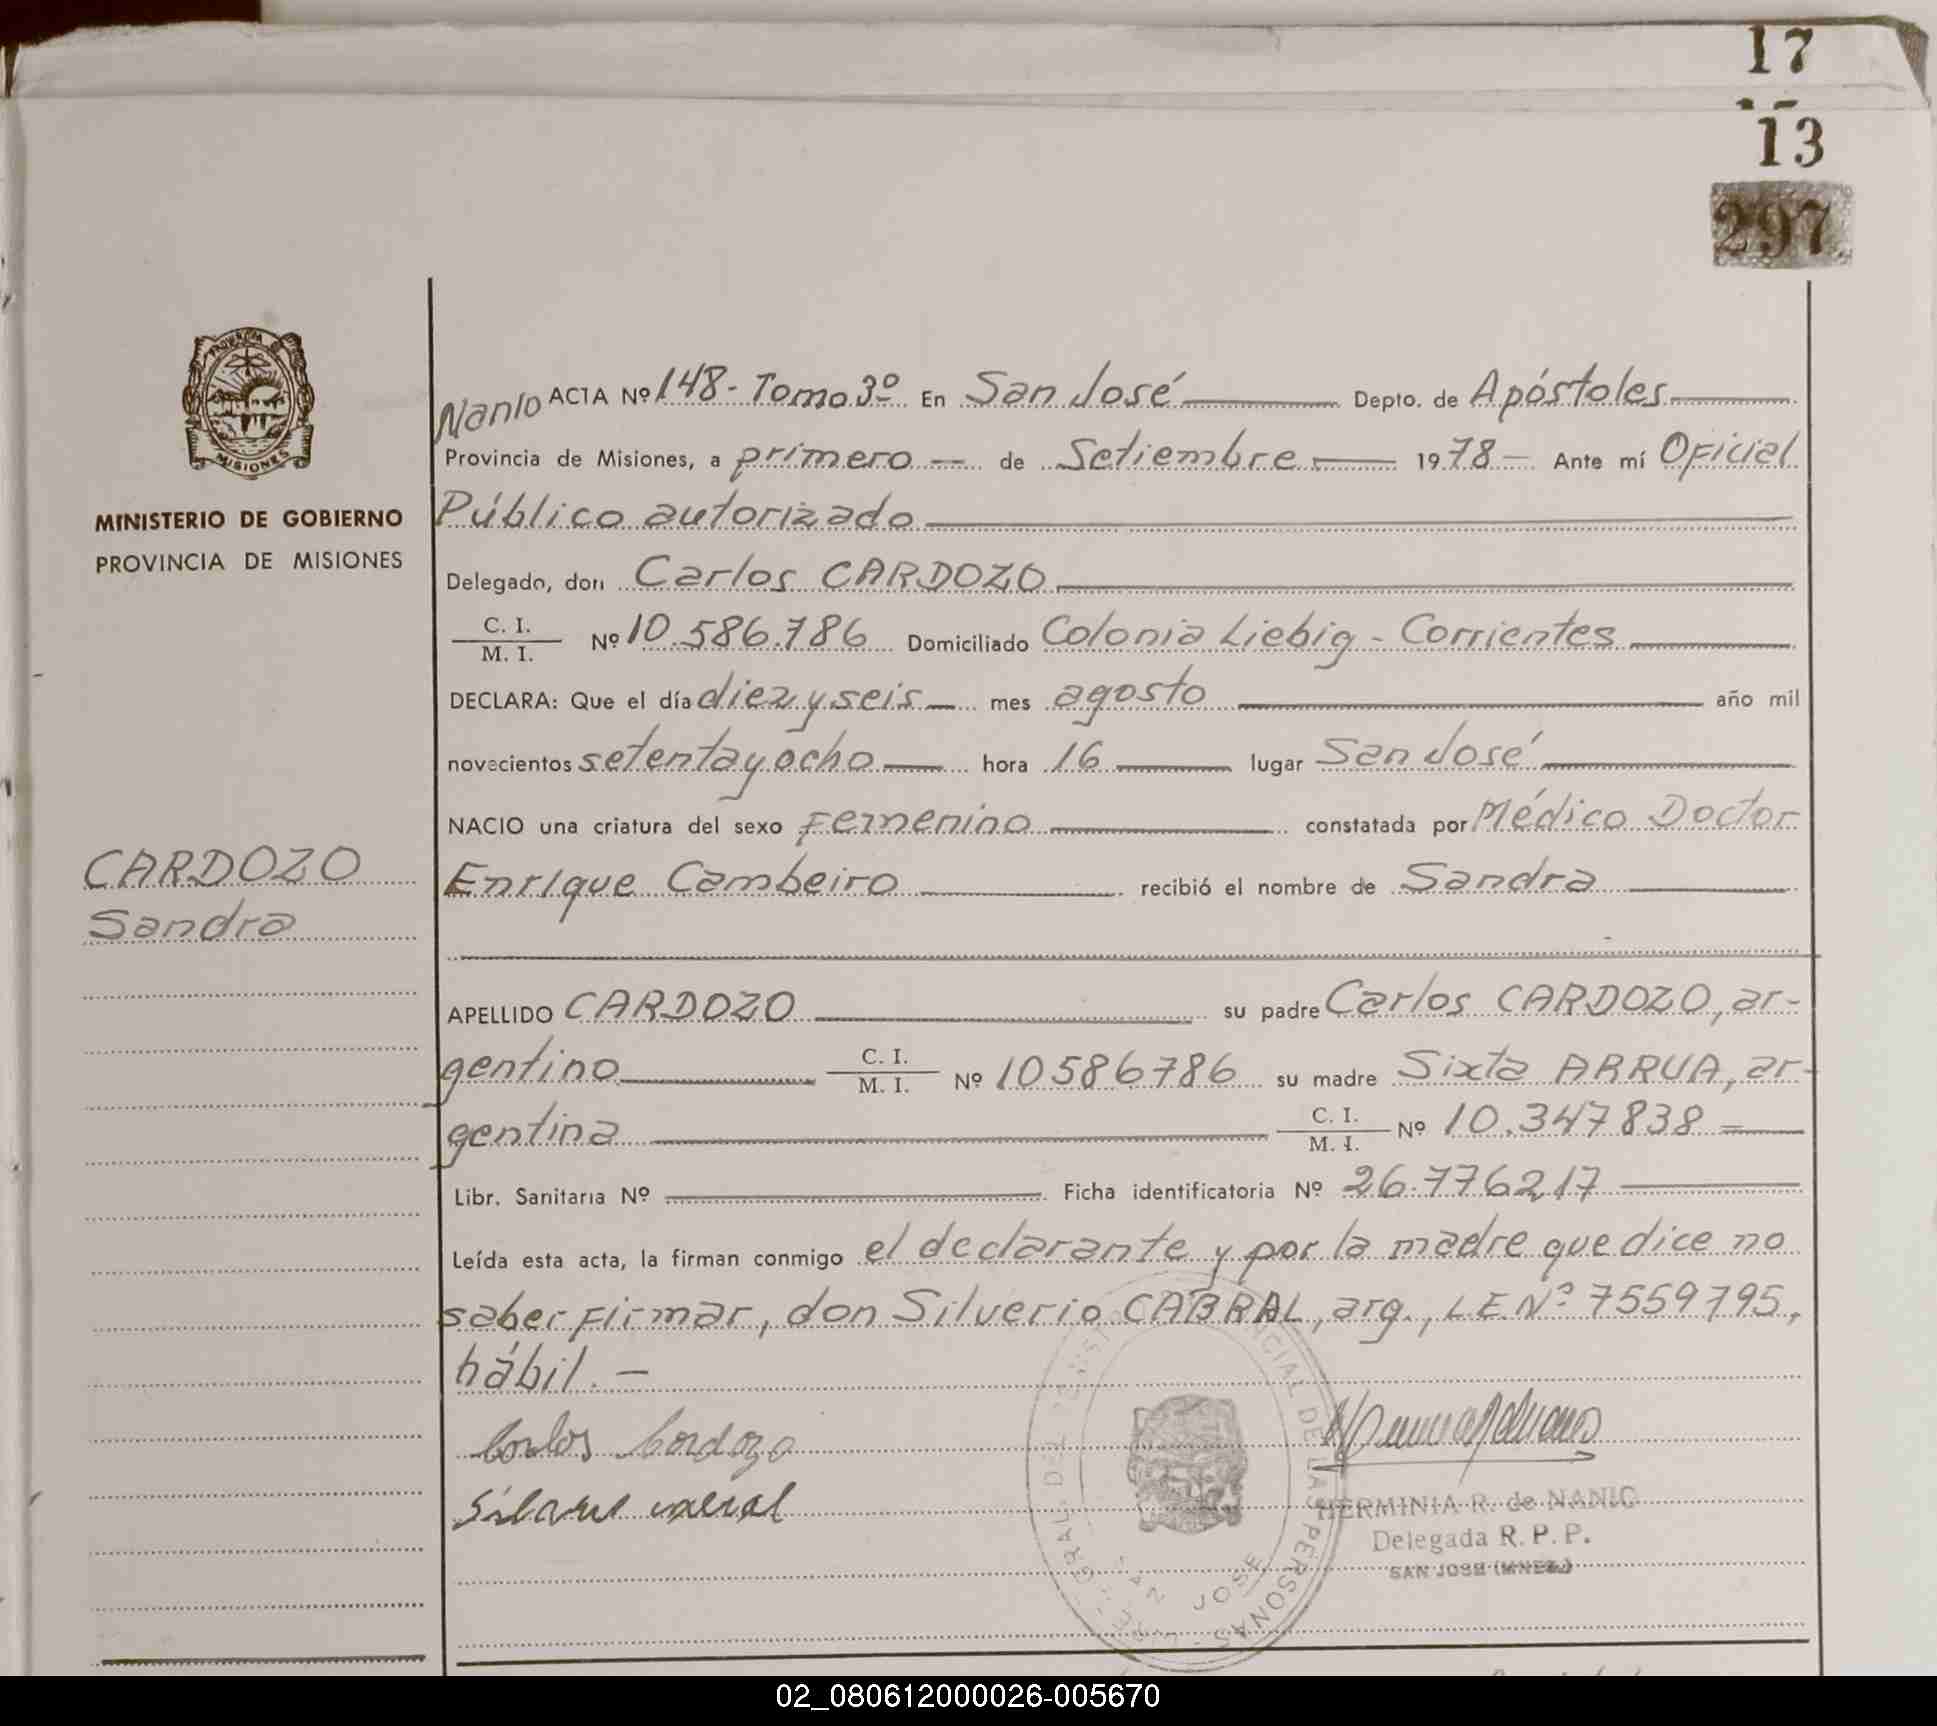 17
13
297
PROVINCIA
MISIONES
MINISTERIO DE GOBIERNO
PROVINCIA DE MISIONES
CARDOZO
Sandra
ACTA Nº 148 - Tomo 3º En San José Depto. de Apóstoles
Provincia de Misiones, a primero — de Setiembre 1978 — Ante mí Oficial
Público autorizado
Delegado, don Carlos CARDOZO
C. I. / M. I. Nº 10.586.786 Domiciliado Colonia Liebig - Corrientes
DECLARA: Que el día diez y seis — mes agosto año mil
novecientos setenta y ocho — hora 16 lugar San José
NACIO una criatura del sexo Femenino constatada por Médico Doctor
Enrique Cambeiro recibió el nombre de Sandra
APELLIDO CARDOZO su padre Carlos CARDOZO, ar-
gentino C. I. / M. I. Nº 10586786 su madre Sixta ARRUA, ar-
gentina C. I. / M. I. Nº 10.347838 =
Libr. Sanitaria Nº Ficha identificatoria Nº 26.776217
Leída esta acta, la firman conmigo el declarante y por la madre que dice no
saber firmar, don Silverio CABRAL, arg., L.E.Nº 7559795,
hábil. —
Carlos Cardozo
HERMINIA R. de NANIC
Delegada R. P. P.
SAN JOSE (MNES.)
DE LAS PERSONAS
SAN JOSE
02_080612000026-005670